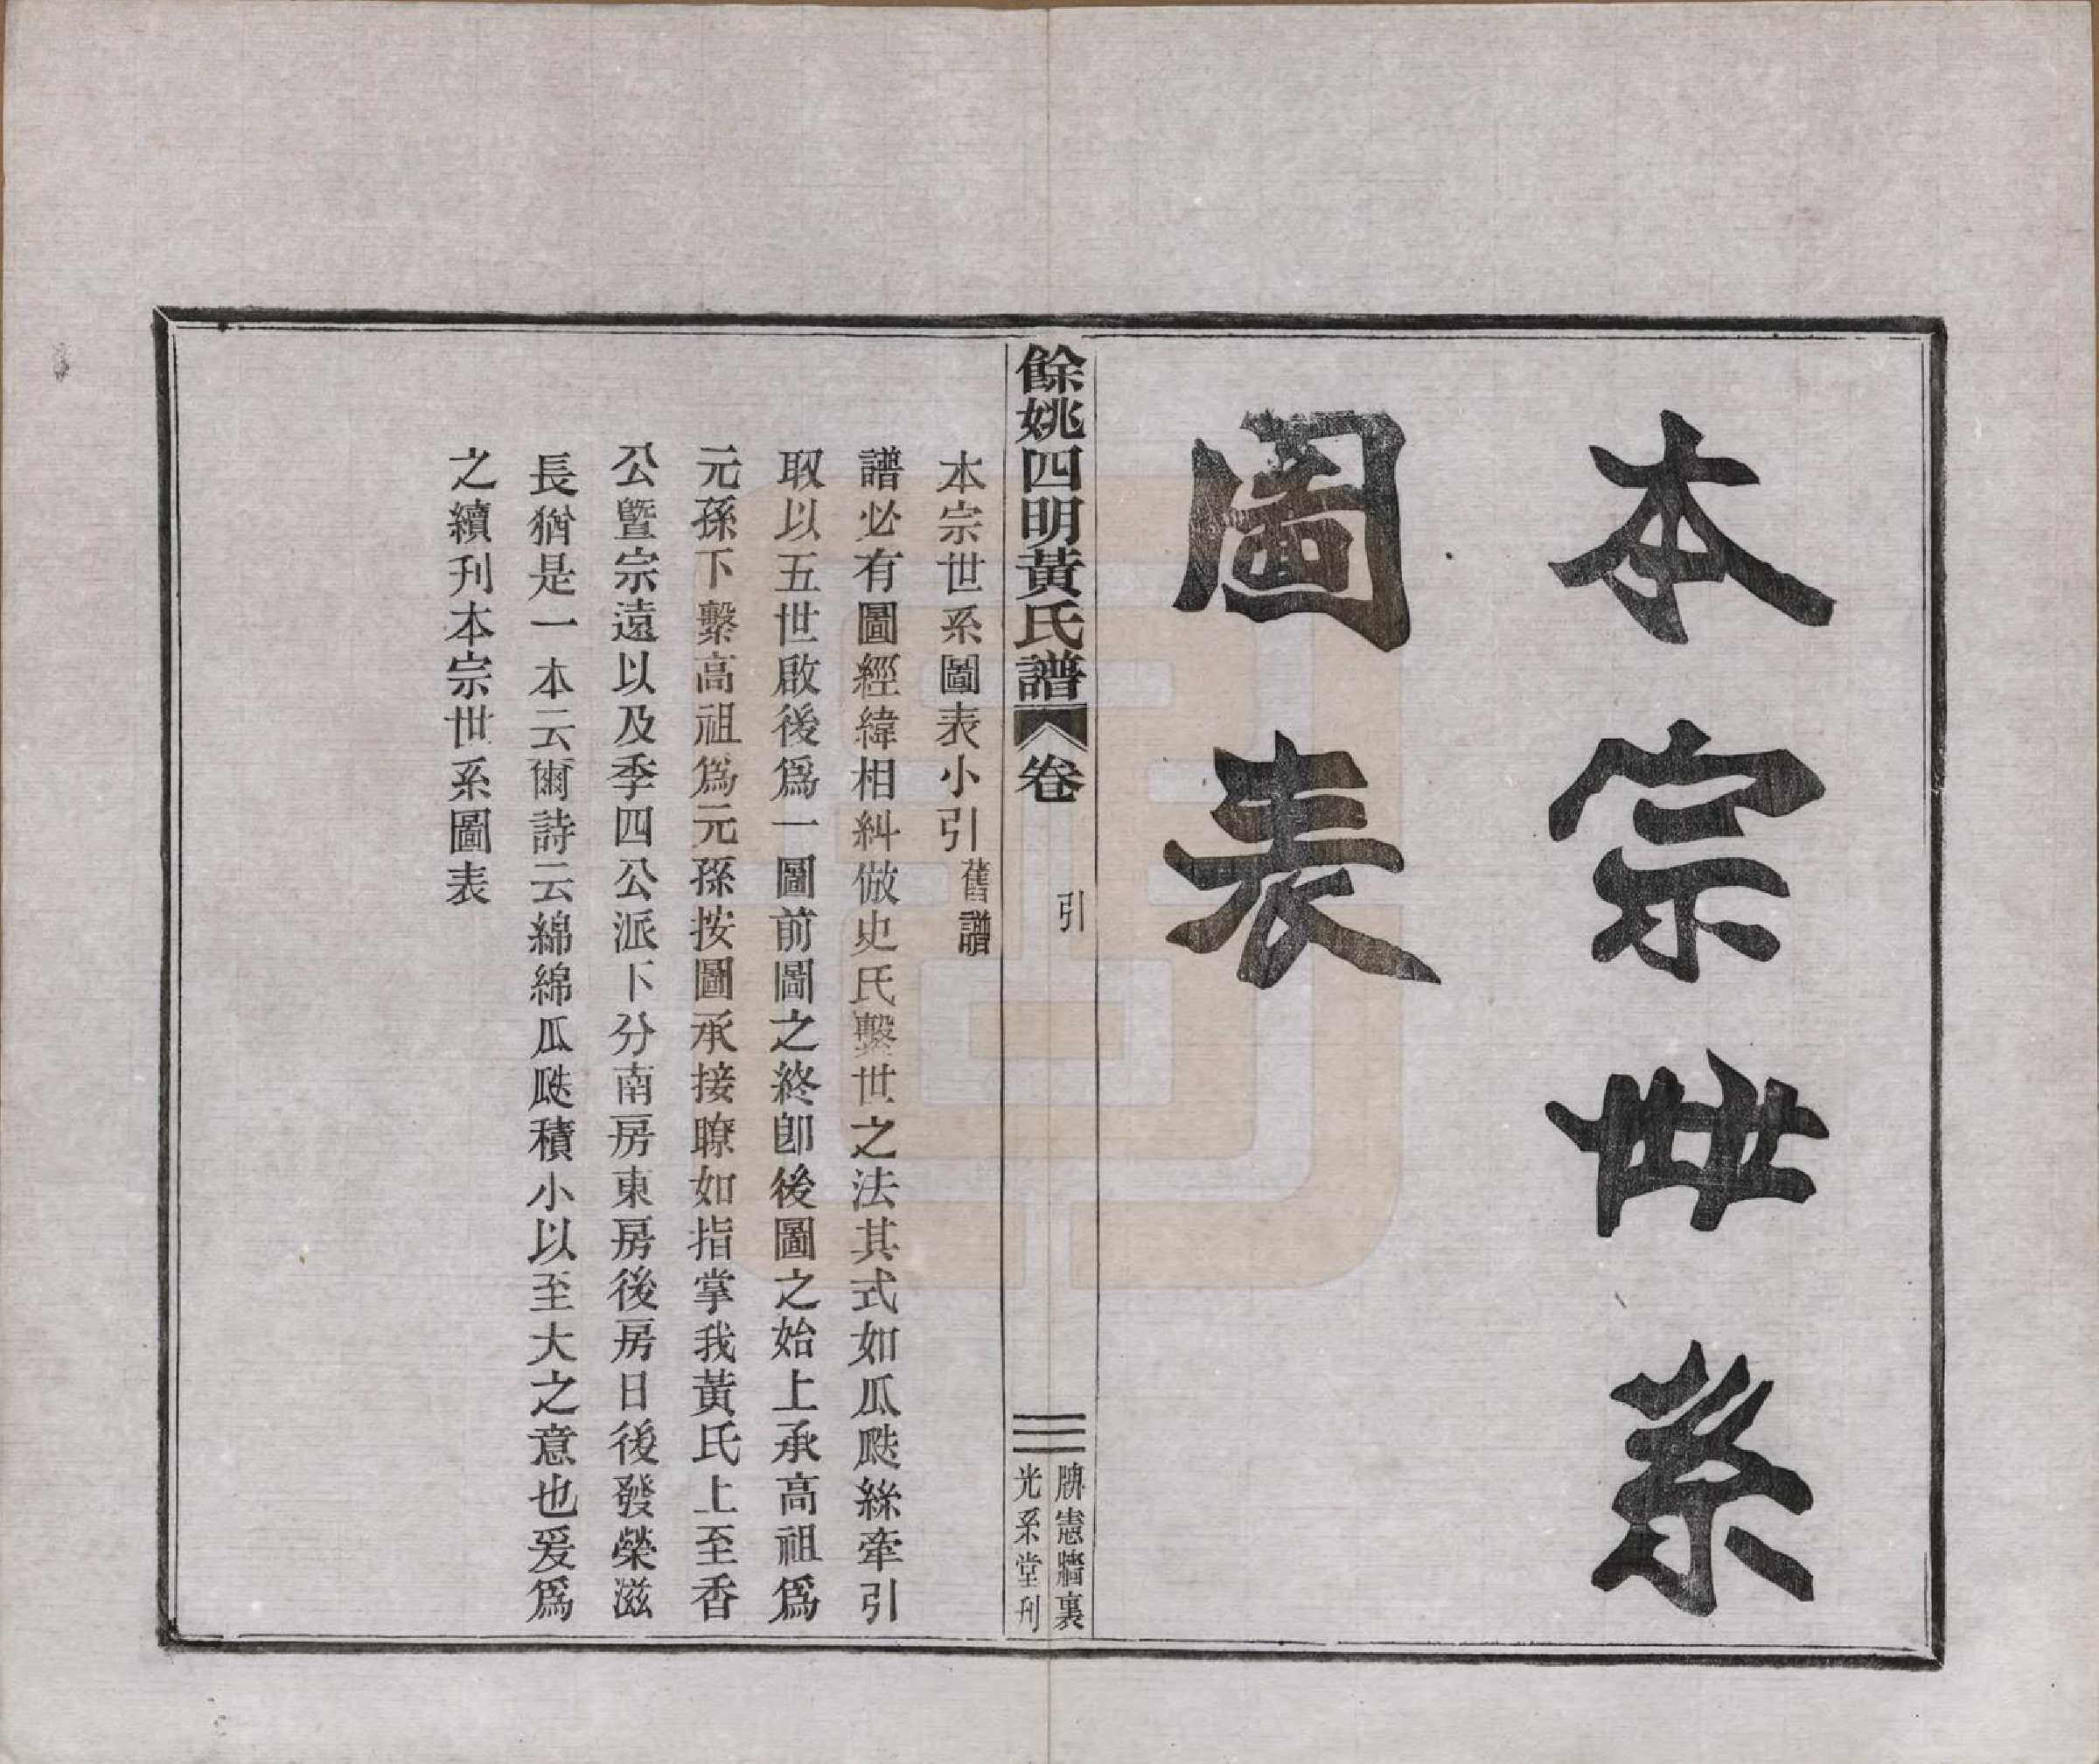 本宗世系
圖表
餘姚四明黃氏譜 卷
引
牌憲牆裏
光系堂刊
本宗世系圖表小引 舊譜
譜必有圖經緯相糾倣史氏繫世之法其式如瓜瓞絲牽引
取以五世啟後爲一圖前圖之終卽後圖之始上承高祖爲
元孫下繫高祖爲元孫按圖承接瞭如指掌我黃氏上至香
公暨宗遠以及季四公派下分南房東房後房日後發榮滋
長猶是一本云爾詩云綿綿瓜瓞積小以至大之意也爰爲
之續刊本宗世系圖表